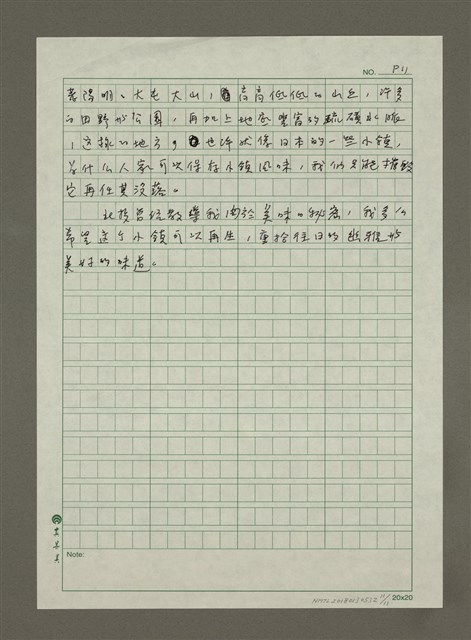 NO. P11
著陽明、大屯大山，高高低低的山丘，許多
的田野外公園，再加上地底豐富的硫磺水脈
，這樣的地方，也許就像日本的一些小鎮，
為什么人家可以保存小鎮風味，我們只能摧毀
它再任其沒落。
北投曾經教導我關於美味的秘密，我多么
希望這个小鎮可以再生，重拾往日的幽雅與
美好的味道。
Note:
20x20